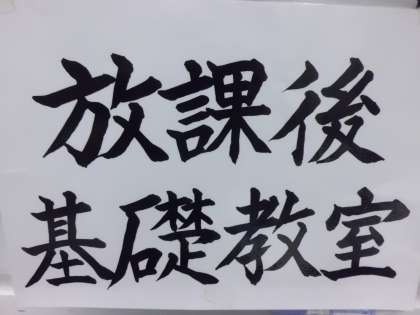 放課後
基礎教室